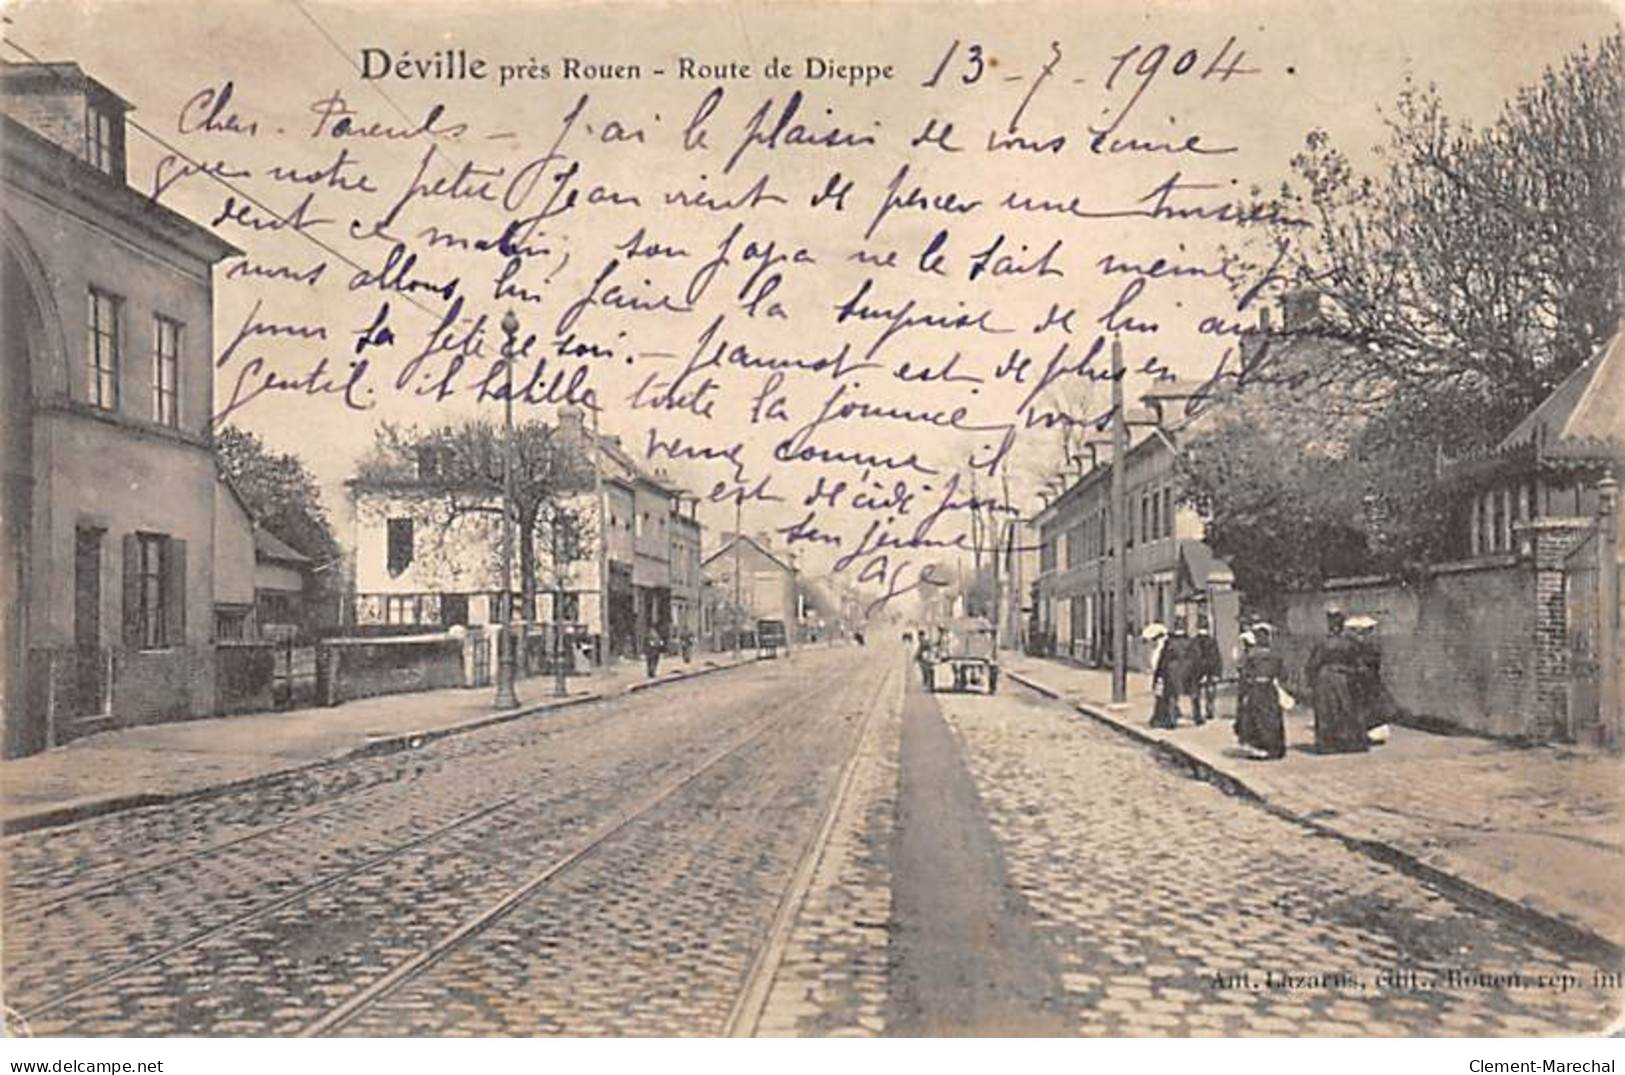 Déville près Rouen - Route de Dieppe 13-7-1904.
Chers Parents - J'ai le plaisir de vous écrire
que notre petit Jean vient de percer une troisième
dent ce matin, son papa ne le sait même pas
nous allons lui faire la surprise de lui
pour sa fête ce soir. - Jeannot est de plus en plus
gentil. il babille toute la journée vous
verrez comme il
est décidé pour
son jeune
age
Ant. Lazarus, édit., Rouen, rep. int
delcampe.net
Clement-Marechal